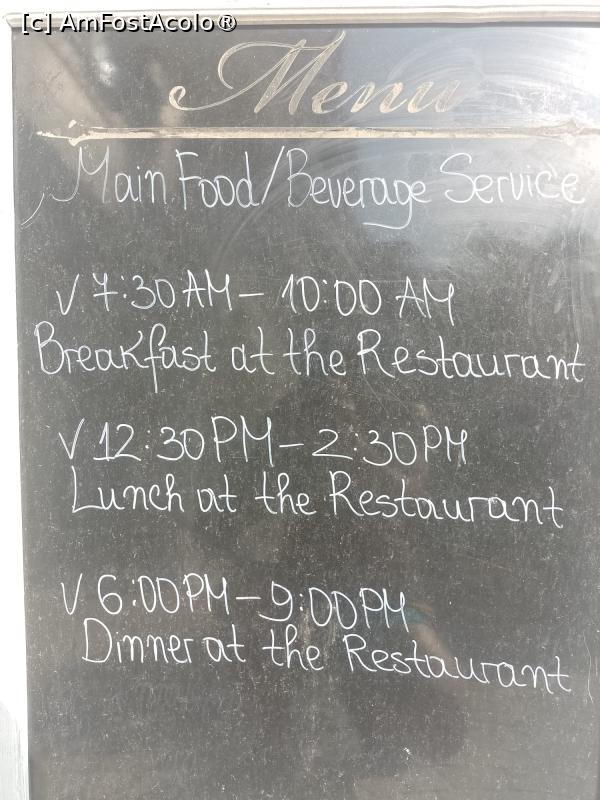 [c] AmFostAcolo®
Menu
Main Food/Beverage Service
√ 7:30 AM – 10:00 AM
Breakfast at the Restaurant
√ 12:30 PM – 2:30 PM
Lunch at the Restaurant
√ 6:00 PM – 9:00 PM
Dinner at the Restaurant